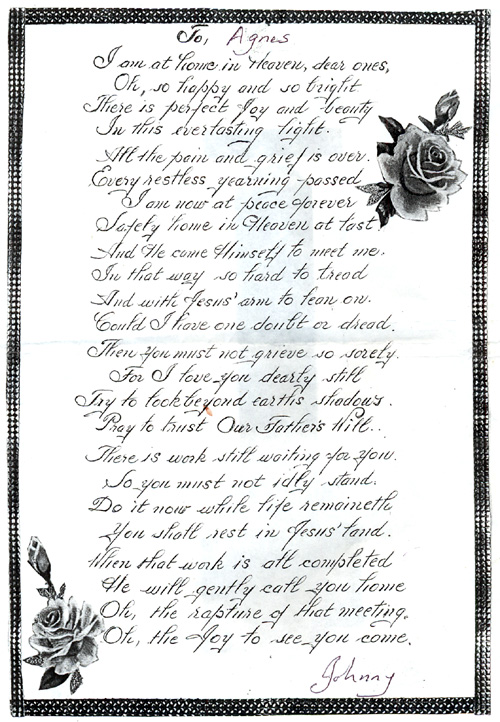 To, Agnes
I am at home in Heaven, dear ones,
Oh, so happy and so bright
There is perfect Joy and beauty
In this everlasting light.
All the pain and grief is over.
Every restless yearning passed
I am now at peace forever
Safely home in Heaven at last
And He came Himself to meet me.
In that way so hard to tread
And with Jesus' arm to lean on.
Could I have one doubt or dread.
Then you must not grieve so sorely.
For I love you dearly still
Try to look beyond earth's shadows.
Pray to trust Our Father's Will..
There is work still waiting for you.
So you must not idly stand.
Do it now while life remaineth
You shall rest in Jesus' land.
When that work is all completed
He will gently call you home
Oh, the rapture of that meeting.
Oh, the Joy to see you come.
Johnny